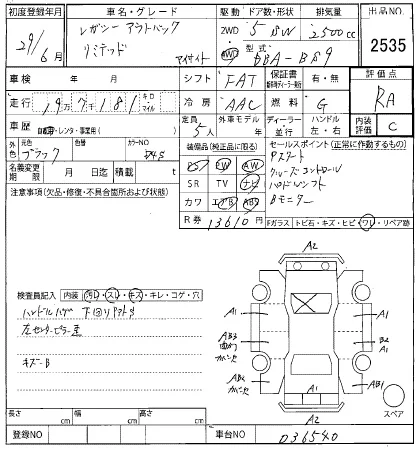 初度登録年月
車名・グレード
駆動
ドア数・形状
排気量
出品NO.
29/6月
レガシー アウトバック
リミテッド
2WD
5 BW
2500cc
型式
DBA-BS9
2535
車検
年
月
シフト
FAT
保証書
有・無
評価点
走行
キロ
マイル
冷房
AAC
燃料
G
RA
車歴
自家用・レンタ・事業用
定員
5人
外車モデル
ディーラー
並行
ハンドル
左・右
内装
評価
C
外色
元色
ブラック
色替
カラーNO
D4S
装備品(純正品に限る)
セールスポイント(正常に作動するもの)
名義変更
期限
月
日迄
積載
t
PS
PW
AW
Pスタート
クルーズコントロール
パドルシフト
Bモニター
SR
TV
ナビ
カワ
エアB
ABS
注意事項(欠品・修復・不具合箇所および状態)
R券
13610円
Fガラス
トビ石・キズ・ヒビ・ワレ・リペア跡
検査員記入
内装
汚レ・スレ・キズ・キレ・コゲ・穴
ハンドルハゲ 下回りサビ
キズ-B
A2
A1
A1
AB3
B2
A1
A2
A1
AB1
A2
スペア
長さ
cm
幅
cm
高さ
cm
登録NO
車台NO
036540